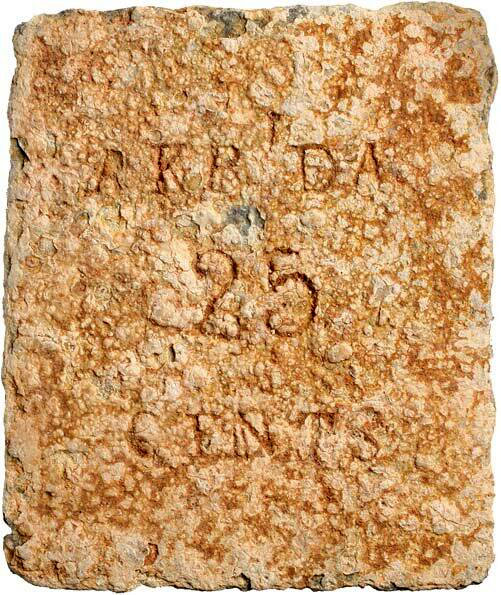 AKR'DA
25
CENTS